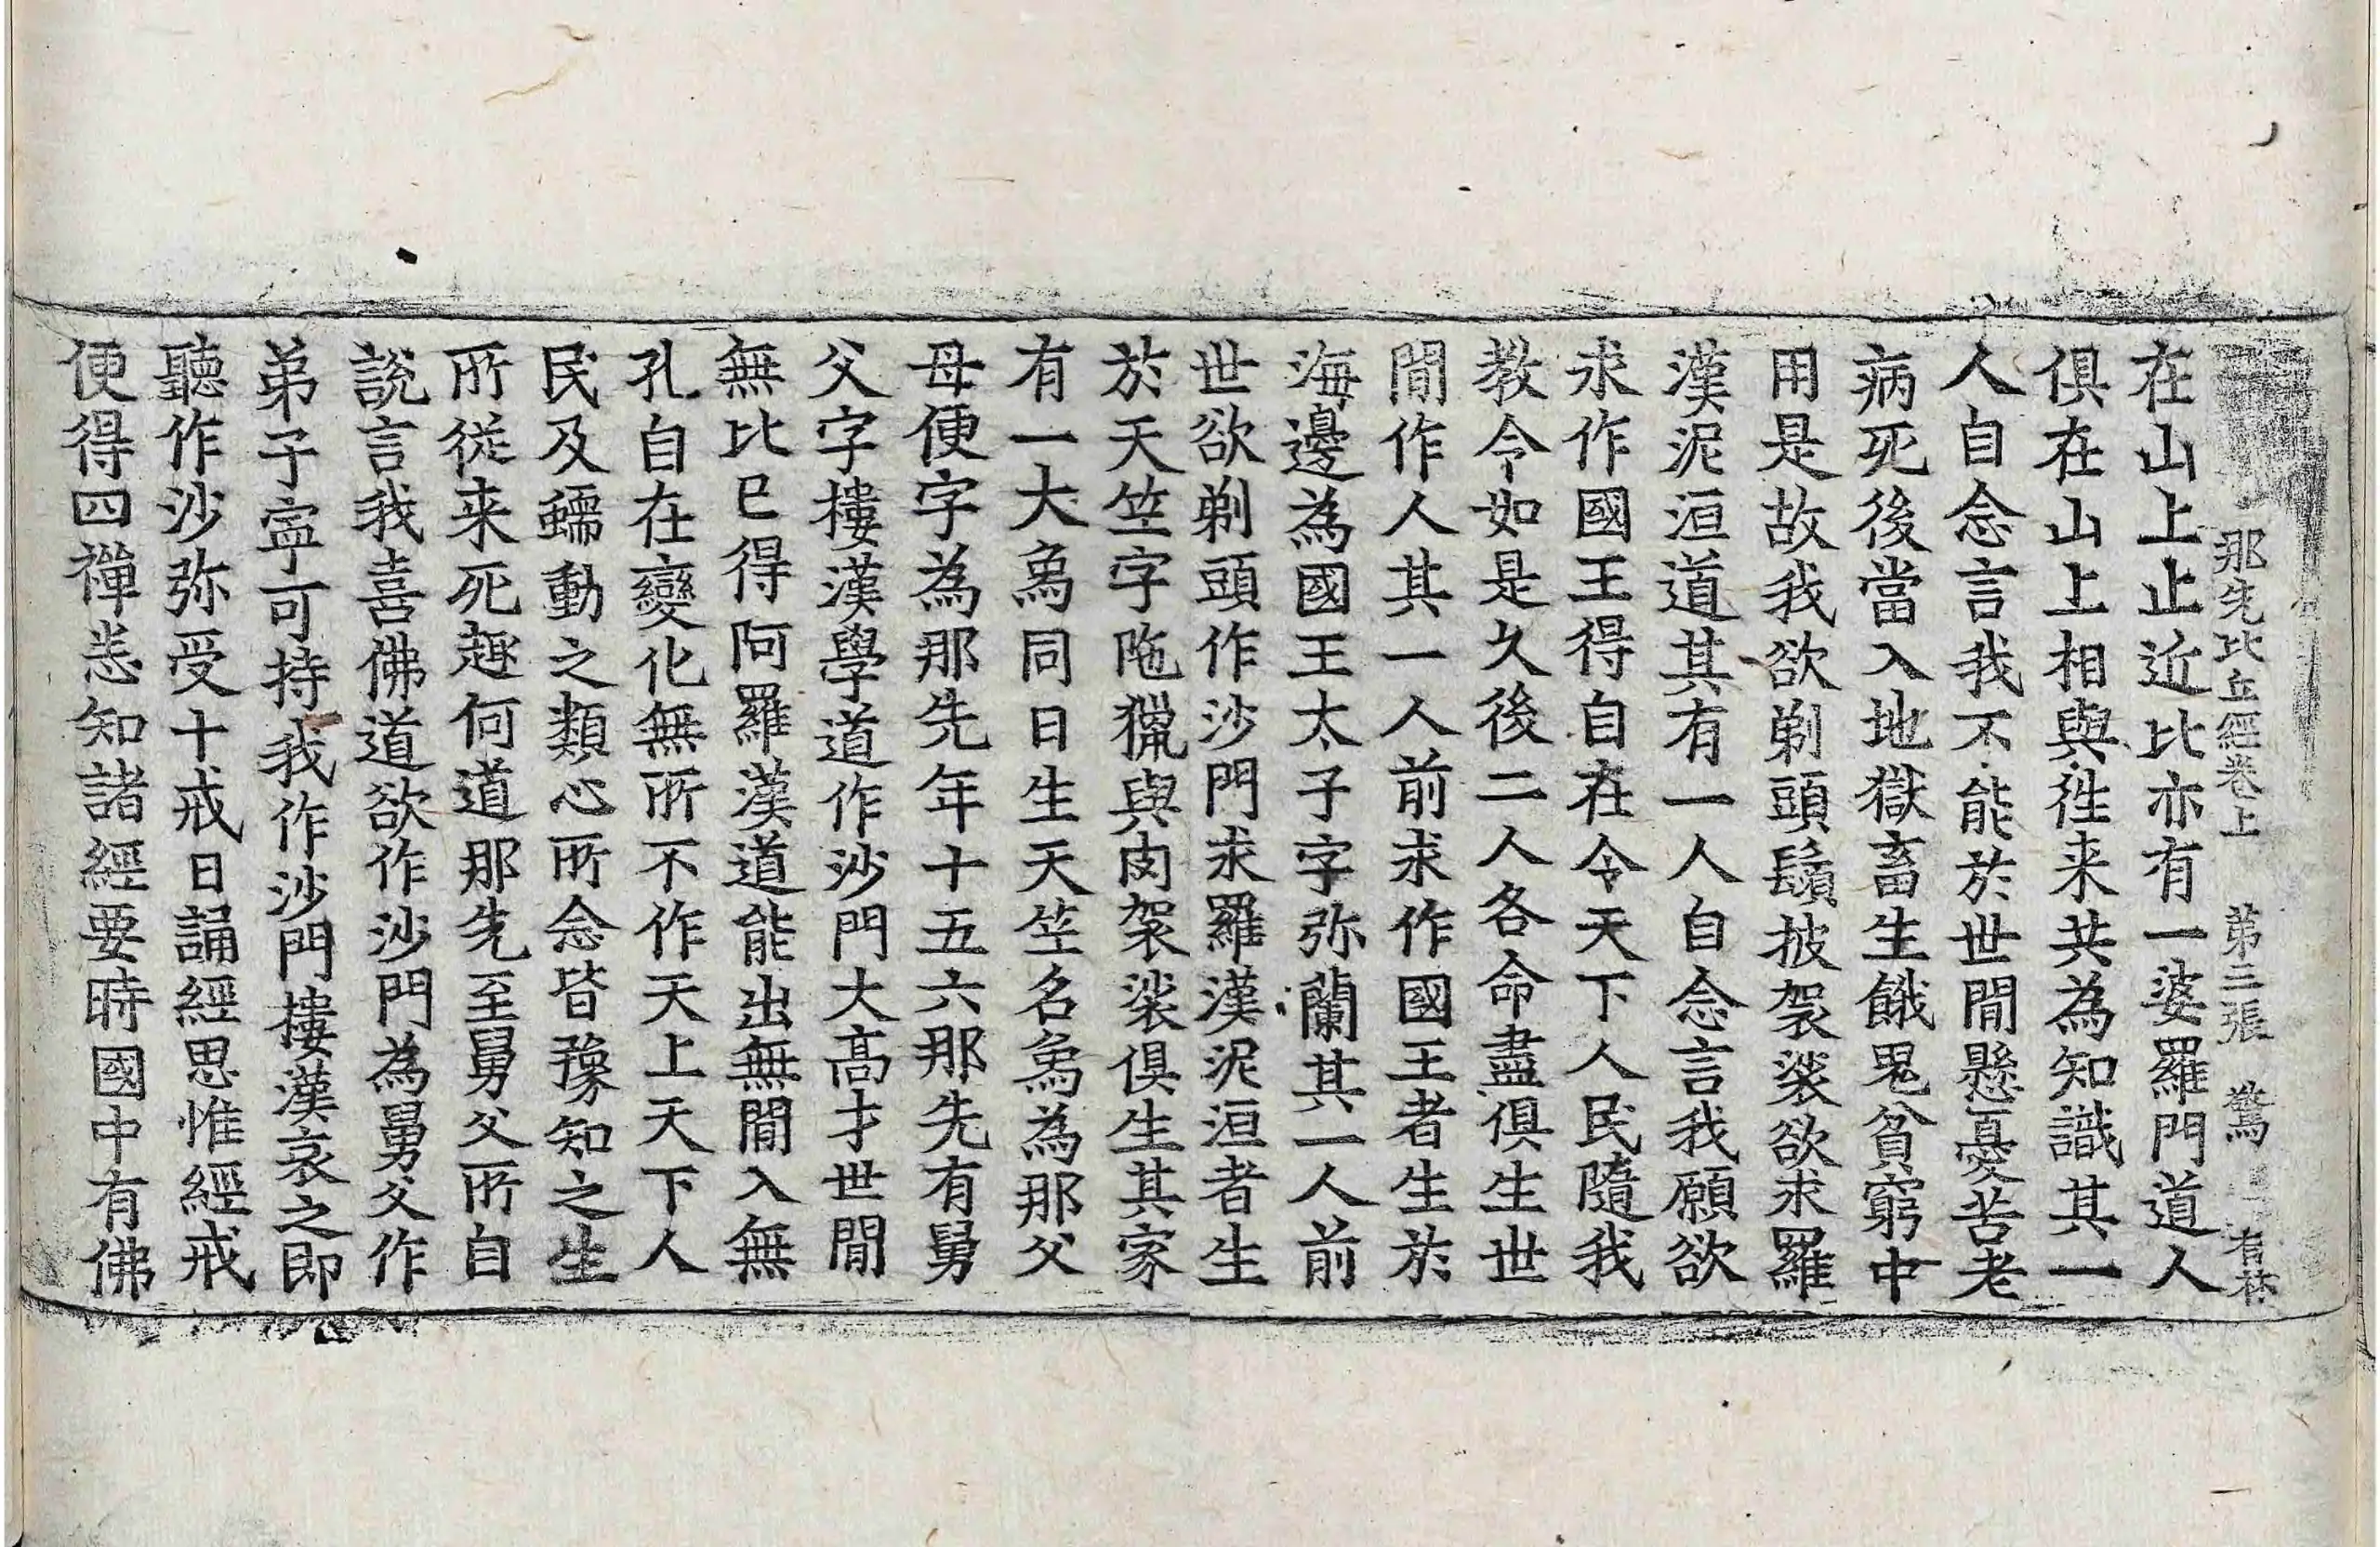 那先比丘經卷上 第三張 驚 有林
在山上止近比亦有一婆羅門道人
俱在山上相與徃来共為知識其一
人自念言我不能於世間懸憂苦老
病死後當入地獄畜生餓鬼貧窮中
用是故我欲剃頭鬚披袈裟欲求羅
漢泥洹道其有一人自念言我願欲
求作國王得自在令天下人民隨我
教令如是久後二人各命盡俱生世
間作人其一人前求作國王者生於
海邊為國王太子字弥蘭其一人前
世欲剃頭作沙門求羅漢泥洹者生
於天笁字陁獵與肉袈裟俱生其家
有一大為同日生天笁名為為那父
母便字為那先年十五六那先有舅
父字樓漢學道作沙門大高才世間
無比已得阿羅漢道能出無間入無
孔自在變化無所不作天上天下人
民及蠕動之類心所念皆豫知之生
所從来死趣何道那先至舅父所自
說言我喜佛道欲作沙門為舅父作
弟子寧可持我作沙門樓漢哀之即
聽作沙弥受十戒日誦經思惟經戒
便得四禪悉知諸經要時國中有佛